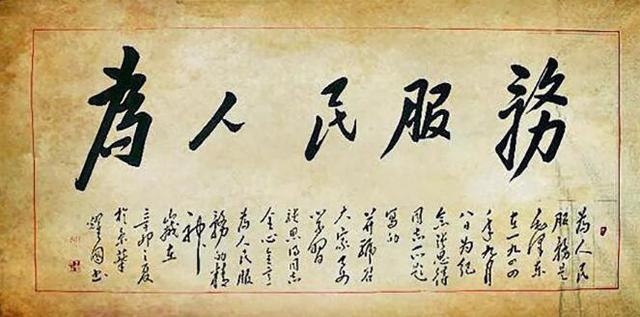 為人民服務
為人民
服務是
毛澤東
在一九四
四年九月
八日为紀
念張思德
同志所題
寫的
并號召
大家要
學習
張思德同志
全心全意
為人民服
務的精
神
歲在
辛卯之夏
於京華
耀國書